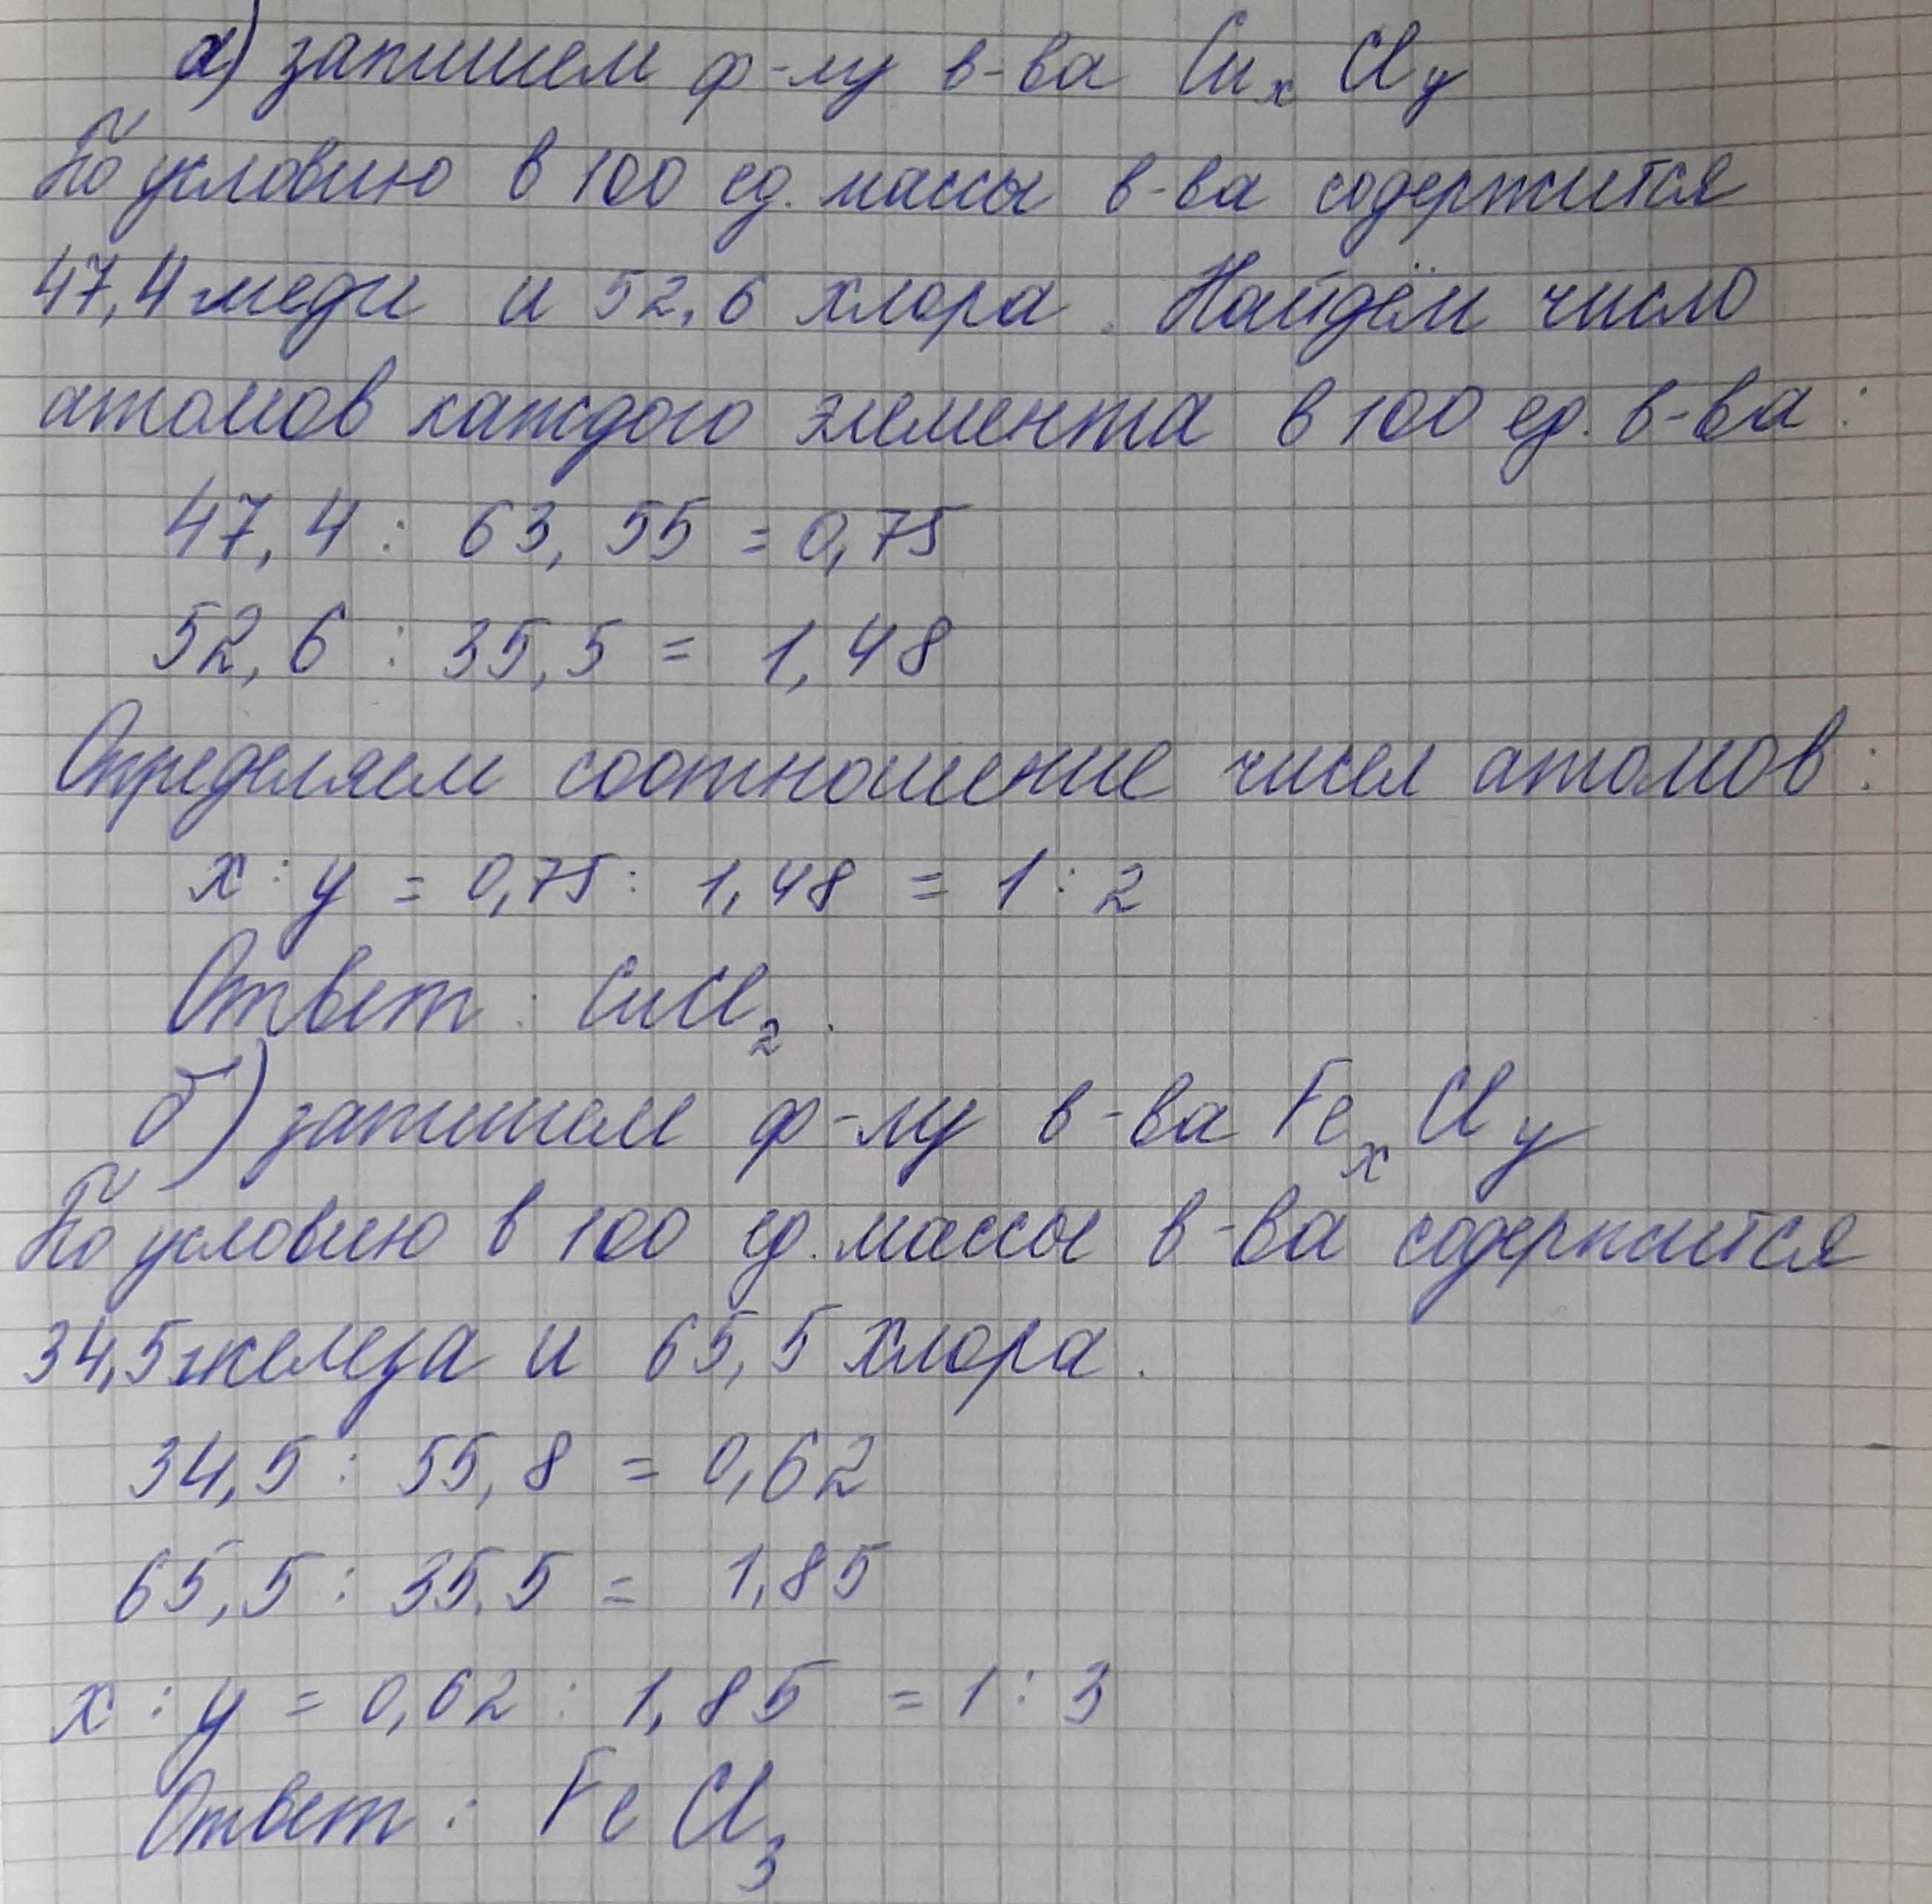 а) запишем ф-лу в-ва CuxCly
По условию в 100 ед. массы в-ва содержится
47,4 меди и 52,6 хлора. Найдём число
атомов каждого элемента в 100 ед. в-ва:
47,4 : 63,55 = 0,75
52,6 : 35,5 = 1,48
Определяем соотношение чисел атомов:
x : y = 0,75 : 1,48 = 1 : 2
Ответ: CuCl2.
б) запишем ф-лу в-ва FexCly
По условию в 100 ед. массы в-ва содержится
34,5 железа и 65,5 хлора.
34,5 : 55,8 = 0,62
65,5 : 35,5 = 1,85
x : y = 0,62 : 1,85 = 1 : 3
Ответ: FeCl3